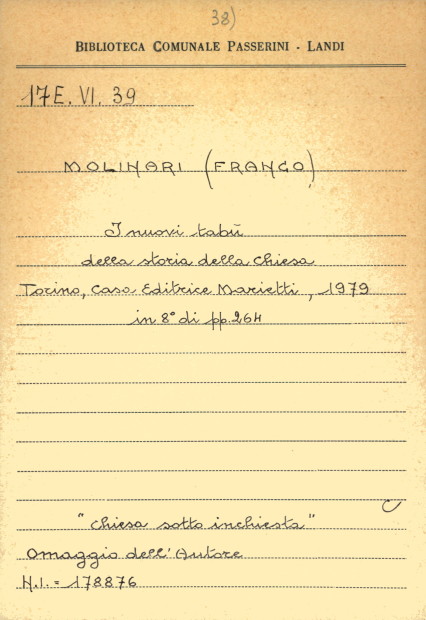 38)
BIBLIOTECA COMUNALE PASSERINI - LANDI
17E. VI. 39
MOLINARI (FRANCO)
I nuovi tabù
della storia della Chiesa
Torino, Casa Editrice Marietti, 1979
in 8° di pp. 264
C
"Chiesa sotto inchiesta"
Omaggio dell'Autore
N.I. = 178876